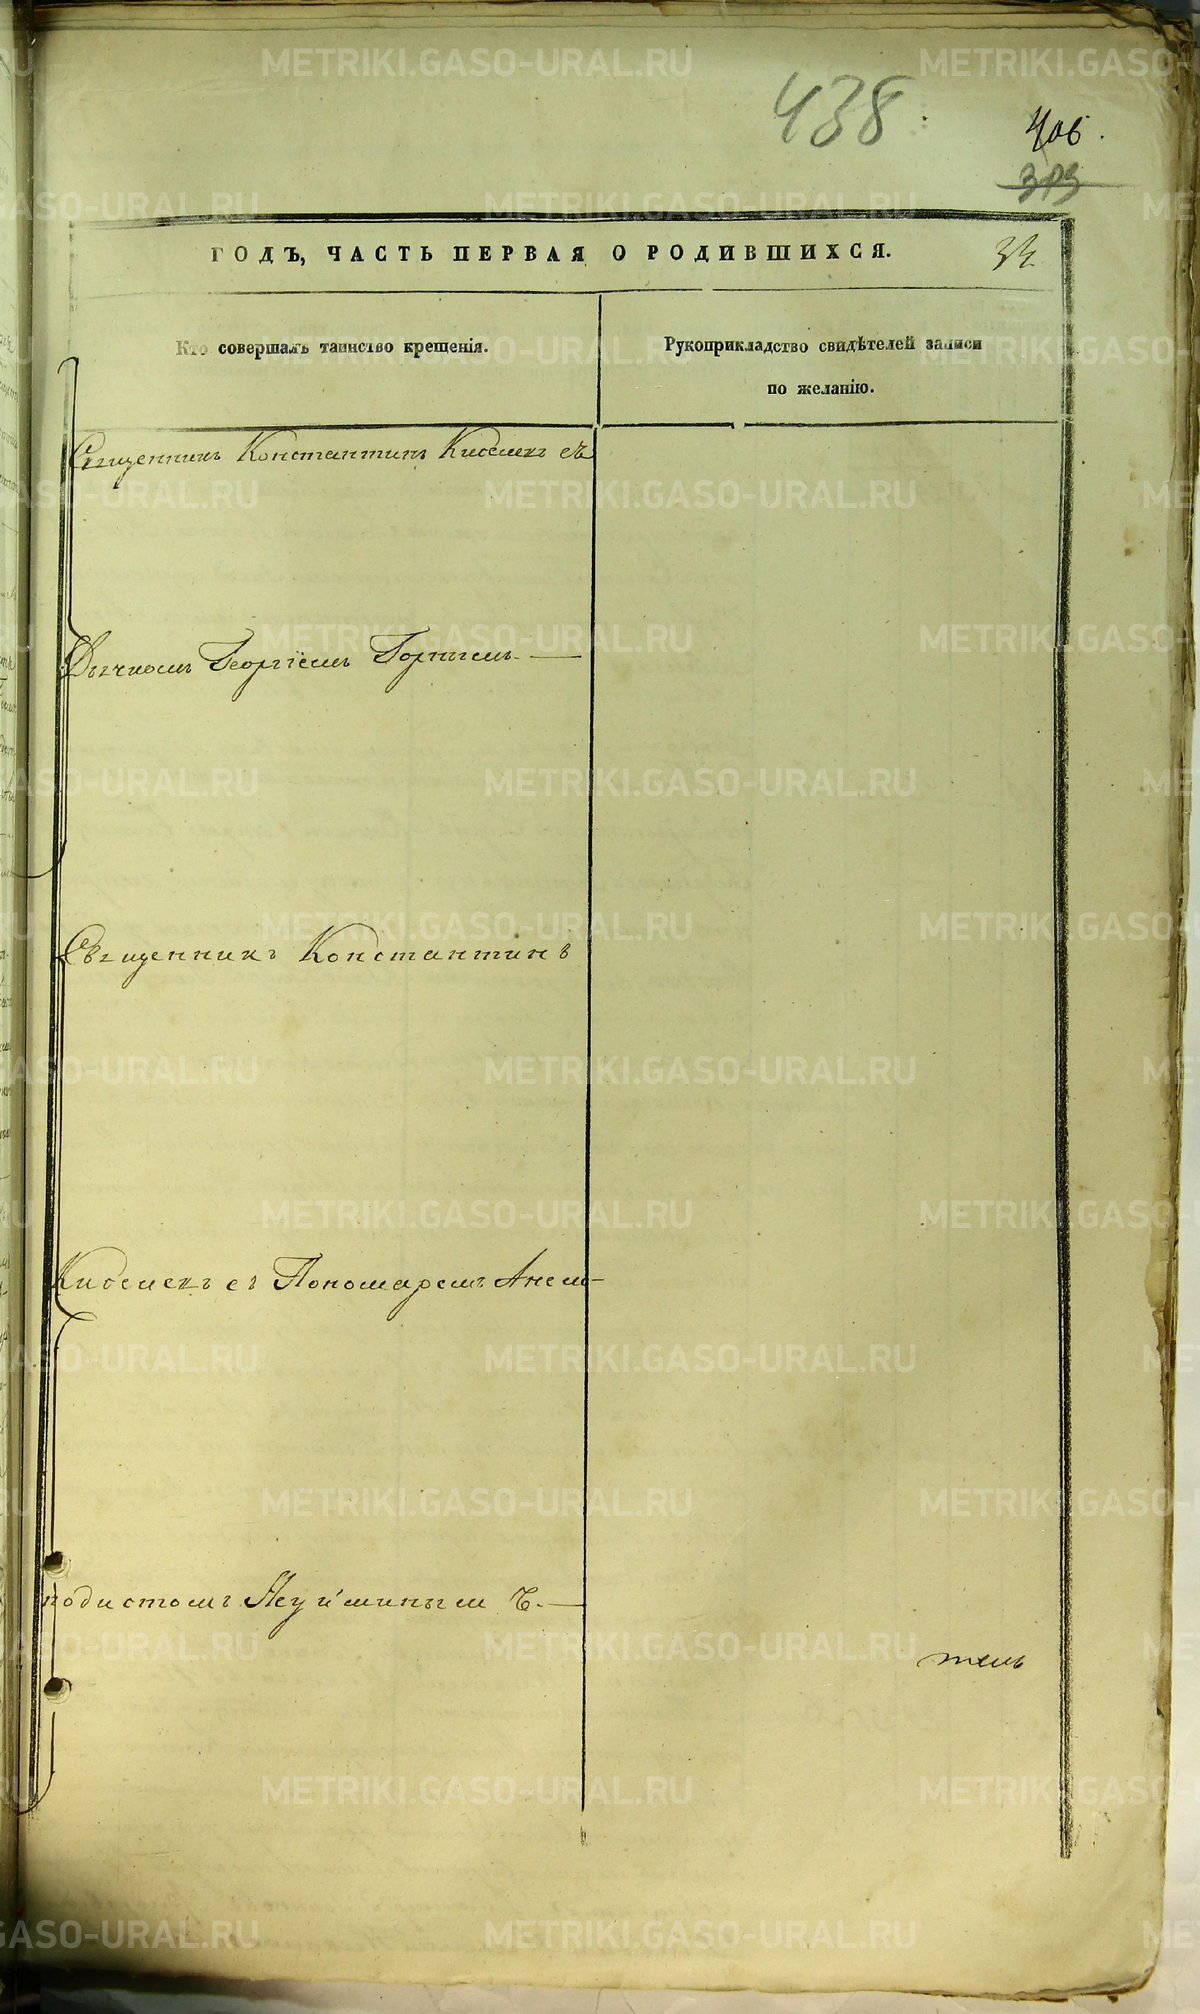 438
406.
ГОДЪ, ЧАСТЬ ПЕРВАЯ О РОДИВШИХСЯ.
Кто совершалъ таинство крещенія.
Рукоприкладство свидѣтелей записи
по желанію.
Священникъ Константинъ Киселевъ съ
Дьячкомъ Георгіемъ
Священникъ Константинъ
Киселевъ съ Пономаремъ Анем-
подистомъ Неуйминымъ.
METRIKI.GASO-URAL.RU